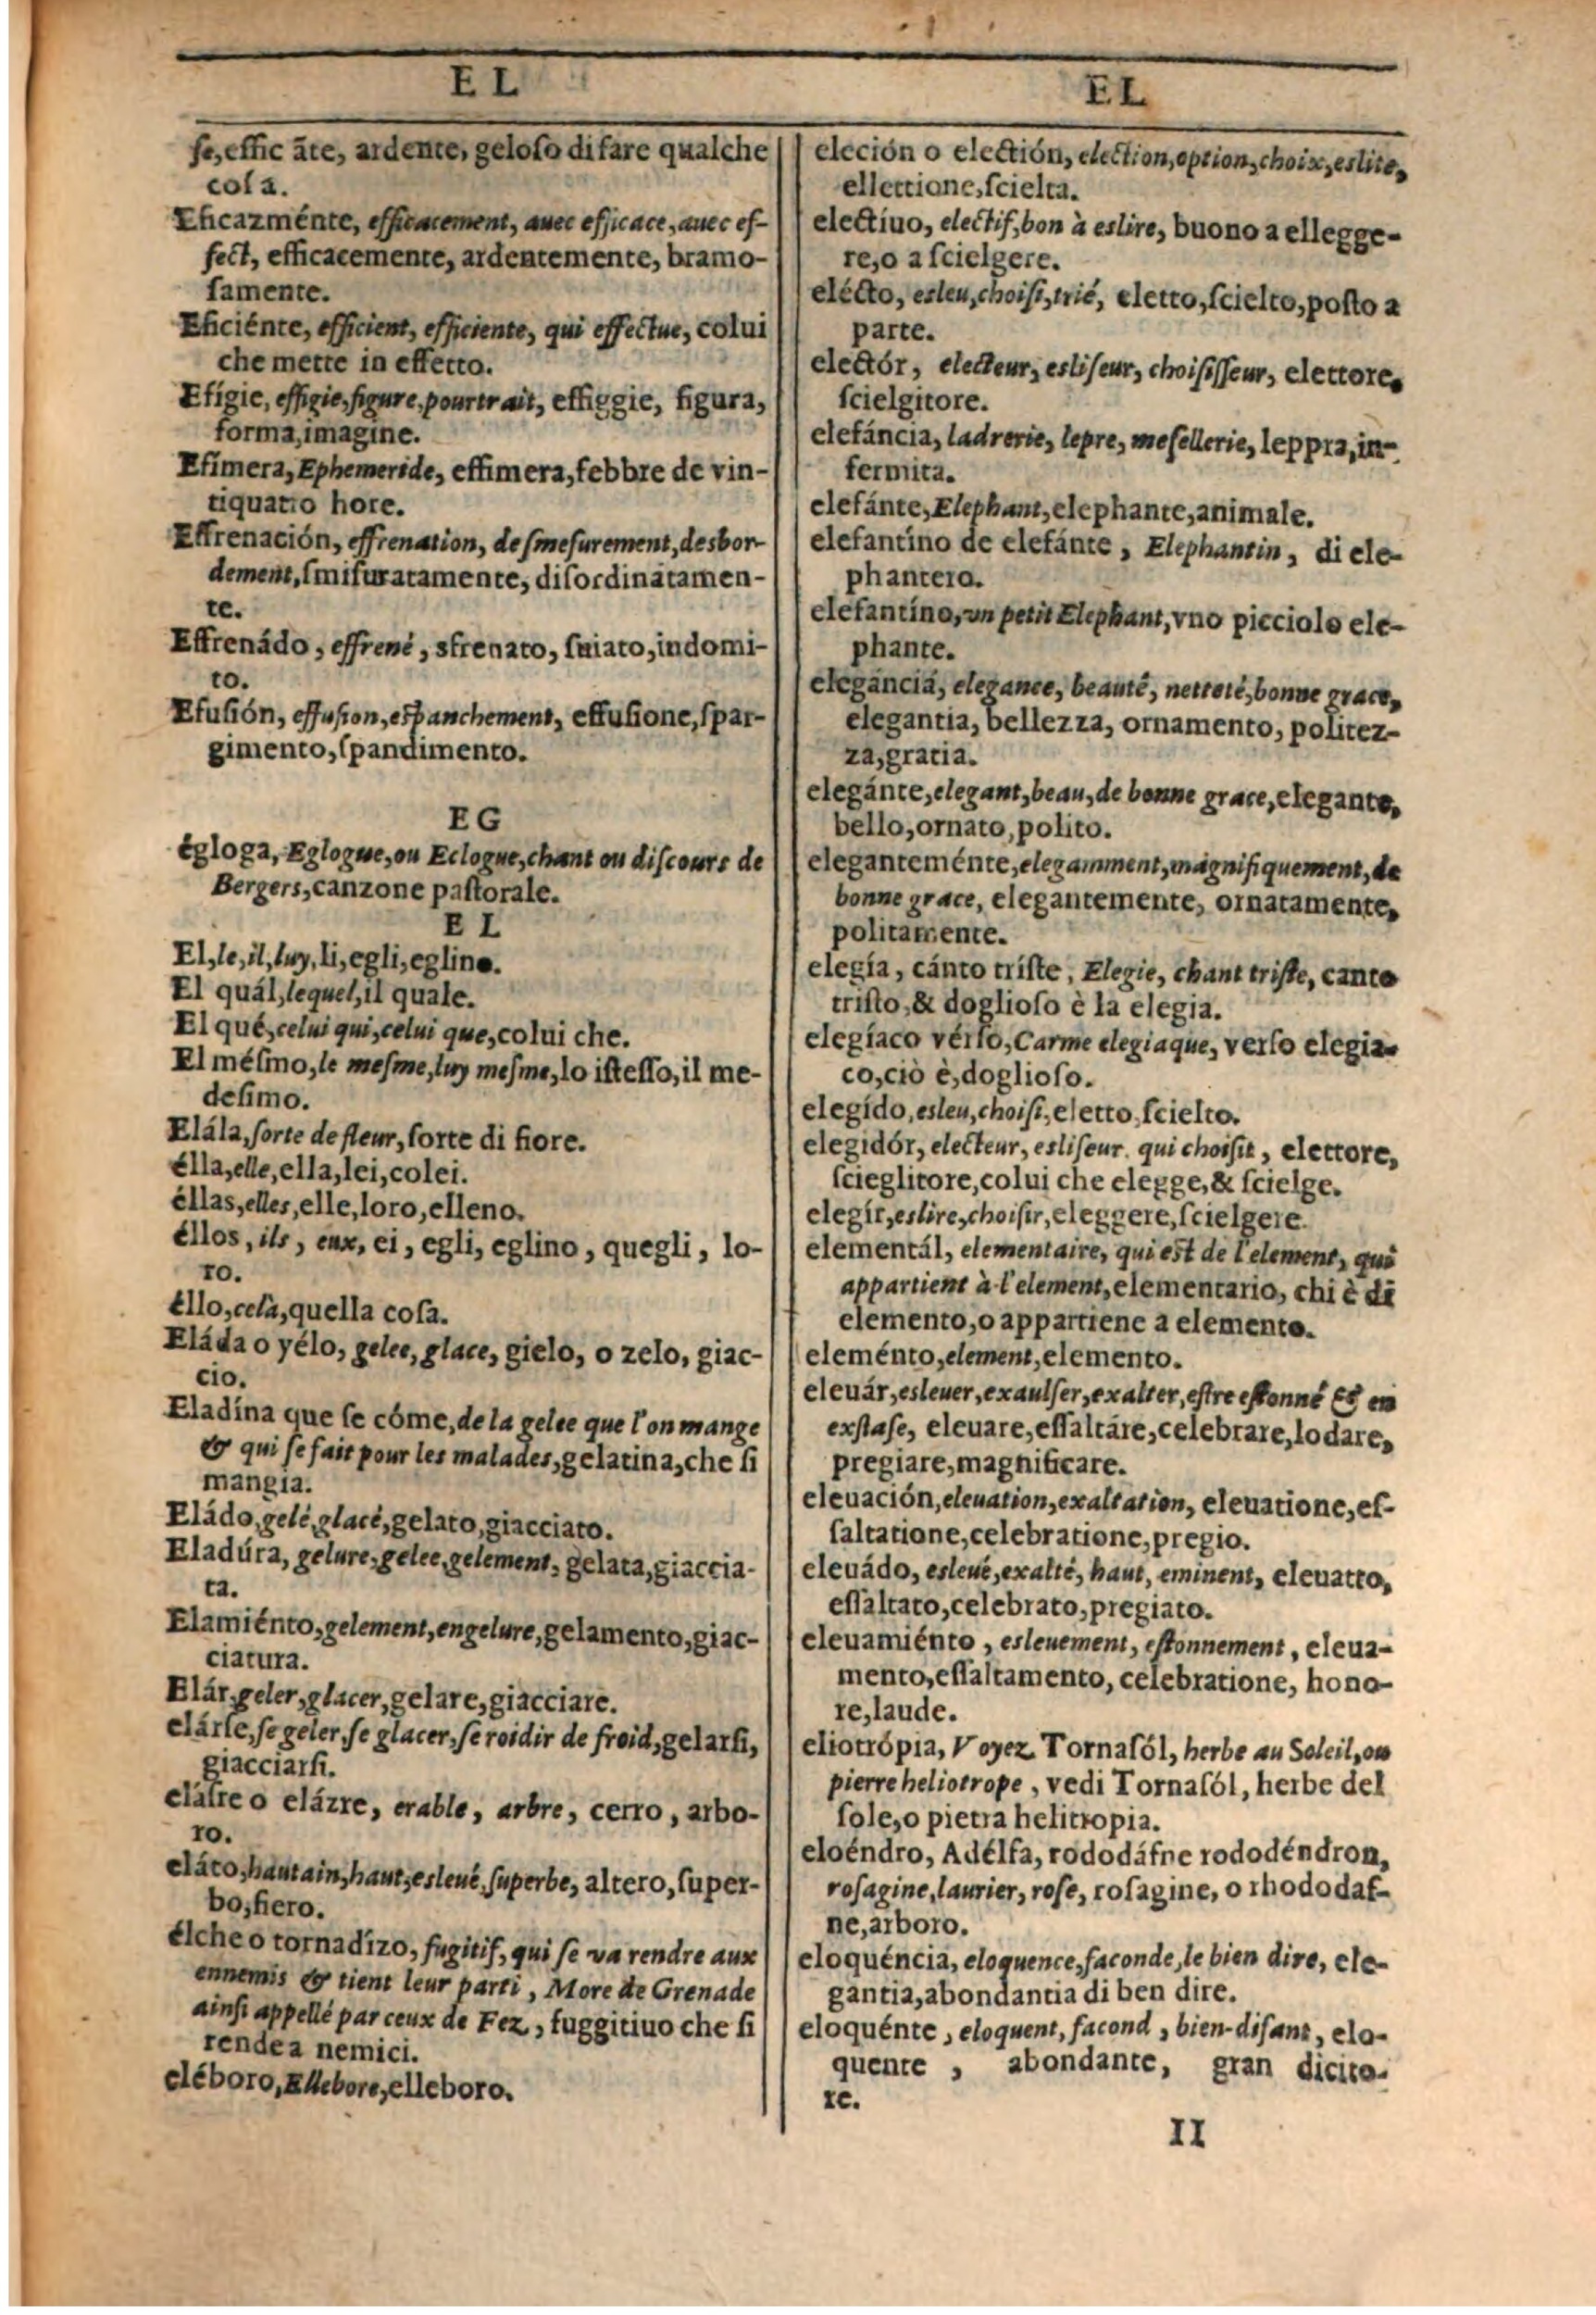 EL
ſe, effic āte, ardente, geloſo di fare qualche
coſa.
Eficazménte, efficacement, auec efficace, auec ef-
fect, efficacemente, ardentemente, bramo-
ſamente.
Eficiénte, efficient, efficiente, qui effectue, colui
che mette in effetto.
Efígie, effigie, figure, pourtrait, effiggie, figura,
forma, imagine.
Efímera, Ephemeride, effimera, febbre de vin-
tiquatro hore.
Effrenación, effrenation, deſmeſurement, desbor-
dement, ſmiſuratamente, diſordinatamen-
te.
Effrenádo, effrené, sfrenato, ſuiato, indomi-
to.
Efuſión, effuſion, eſpanchement, effuſione, ſpar-
gimento, ſpandimento.
EG
égloga, Eglogue, ou Eclogue, chant ou diſcours de
Bergers, canzone paſtorale.
EL
El, le, il, luy, li, egli, eglino.
El quál, lequel, il quale.
El qué, celui qui, celui que, colui che.
El méſmo, le meſme, luy meſme, lo iſteſſo, il me-
deſimo.
Elála, ſorte de fleur, ſorte di fiore.
élla, elle, ella, lei, colei.
éllas, elles, elle, loro, elleno.
éllos, ils, eux, ei, egli, eglino, quegli, lo-
ro.
éllo, cela, quella coſa.
Eláda o yélo, gelee, glace, gielo, o zelo, giac-
cio.
Eladína que ſe cóme, de la gelee que l'on mange
& qui ſe fait pour les malades, gelatina, che ſi
mangia.
Eládo, gelé, glacé, gelato, giacciato.
Eladúra, gelure, gelee, gelement, gelata, giaccia-
ta.
Elamiénto, gelement, engelure, gelamento, giac-
ciatura.
Elár, geler, glacer, gelare, giacciare.
elárſe, ſe geler, ſe glacer, ſe roidir de froid, gelarſi,
giacciarſi.
eláſre o elázre, erable, arbre, cerro, arbo-
ro.
eláto, hautain, haut, esleué, ſuperbe, altero, ſuper-
bo, fiero.
élche o tornadízo, fugitif, qui ſe va rendre aux
ennemis & tient leur parti, More de Grenade
ainſi appellé par ceux de Fez, fuggitiuo che ſi
rende a nemici.
eléboro, Ellebore, elleboro.
EL
eleción o electión, election, option, choix, eslite,
ellettione, ſcielta.
electiuo, electif, bon à eslire, buono a ellegge-
re, o a ſcielgere.
elécto, esleu, choiſi, trié, eletto, ſcielto, poſto a
parte.
electór, electeur, esliſeur, choiſiſſeur, elettore,
ſcielgitore.
elefáncia, ladrerie, lepre, meſellerie, leppra, in-
fermita.
elefánte, Elephant, elephante, animale.
elefantíno de elefánte, Elephantin, di ele-
phantero.
elefantíno, vn petit Elephant, vno picciolo ele-
phante.
elegáncia, elegance, beauté, netteté, bonne grace,
elegantia, bellezza, ornamento, politez-
za, gratia.
elegánte, elegant, beau, de bonne grace, elegante,
bello, ornato, polito.
eleganteménte, elegamment, magnifiquement, de
bonne grace, elegantemente, ornatamente,
politamente.
elegía, cánto tríſte, Elegie, chant triſte, canto
triſto, & doglioſo è la elegia.
elegíaco vérſo, Carme elegiaque, verſo elegia-
co, ciò è, doglioſo.
elegído, esleu, choiſi, eletto, ſcielto.
elegidór, electeur, esliſeur. qui choiſit, elettore,
ſcieglitore, colui che elegge, & ſcielge.
elegír, eslire, choiſir, eleggere, ſcielgere.
elementál, elementaire, qui eſt de l'element, qui
appartient à l'element, elementario, chi è di
elemento, o appartiene a elemento.
eleménto, element, elemento.
eleuár, esleuer, exaulſer, exalter, eſtre eſtonné & en
exſtaſe, eleuare, eſſaltáre, celebrare, lodare,
pregiare, magnificare.
eleuación, eleuation, exaltation, eleuatione, eſ-
ſaltatione, celebratione, pregio.
eleuádo, esleué, exalté, haut, eminent, eleuatto,
eſſaltato, celebrato, pregiato.
eleuamiénto, esleuement, eſtonnement, eleua-
mento, eſſaltamento, celebratione, hono-
re, laude.
eliotrópia, Voyez Tornaſól, herbe au Soleil, ou
pierre heliotrope, vedi Tornaſól, herbe del
ſole, o pietra helitropia.
eloéndro, Adélfa, rododáfne rododéndron,
roſagine, laurier, roſe, roſagine, o rhododaf-
ne, arboro.
eloquéncia, eloquence, faconde, le bien dire, ele-
gantia, abondantia di ben dire.
eloquénte, eloquent, facond, bien-diſant, elo-
quente, abondante, gran dicito-
re.
II